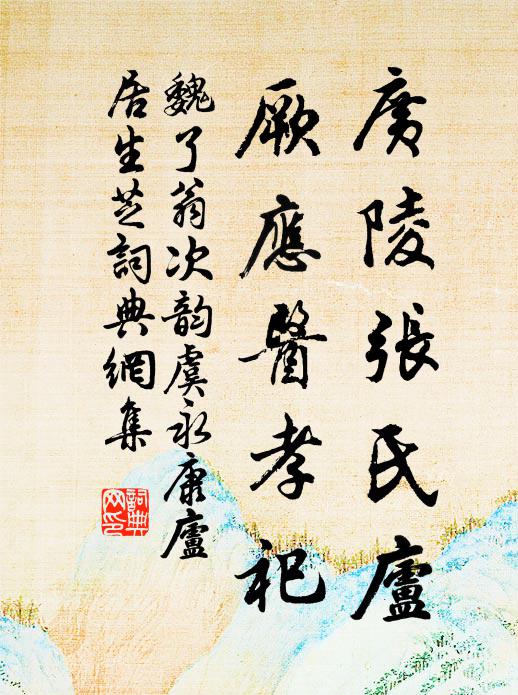 廣陵張氏廬
厥應醫孝祀
魏了翁次韵虞永康廬
居生芝詞典網集
詞典
网印